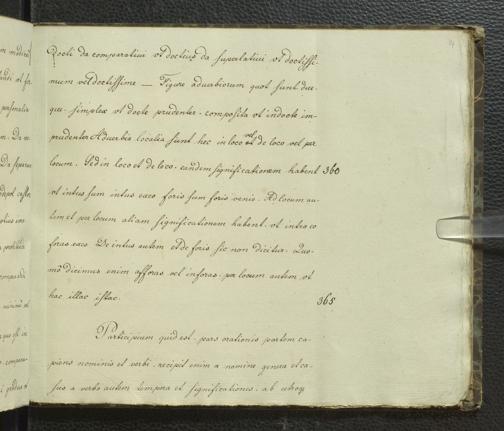 docti da comparatiui vt doctius da superlatiui vt doctissi-
mum vel doctissime — Figure aduerbiorum quot sunt due
que. simplex vt docte prudenter. composita vt indocte im-
prudenter Aduerbia localia sunt hec in loco vel de loco vel per
locum. Sed in loco et de loco. eandem significationem habent 360
vt intus sum intus exeo foris sum foris venio. Ad locum au-
tem et per locum aliam significationem habent. vt intro eo
foras exeo De intus autem et de foris sic non dicitur. Quo-
mō dicimus enim afforas vel inforas. per locum autem vt
hac illac istac. 365
Participium quid est. pars orationis partem ca-
piens nominis et verbi. recipit enim a nomine genera et ca-
sus a verbo autem tempora et significationes. ab utroq